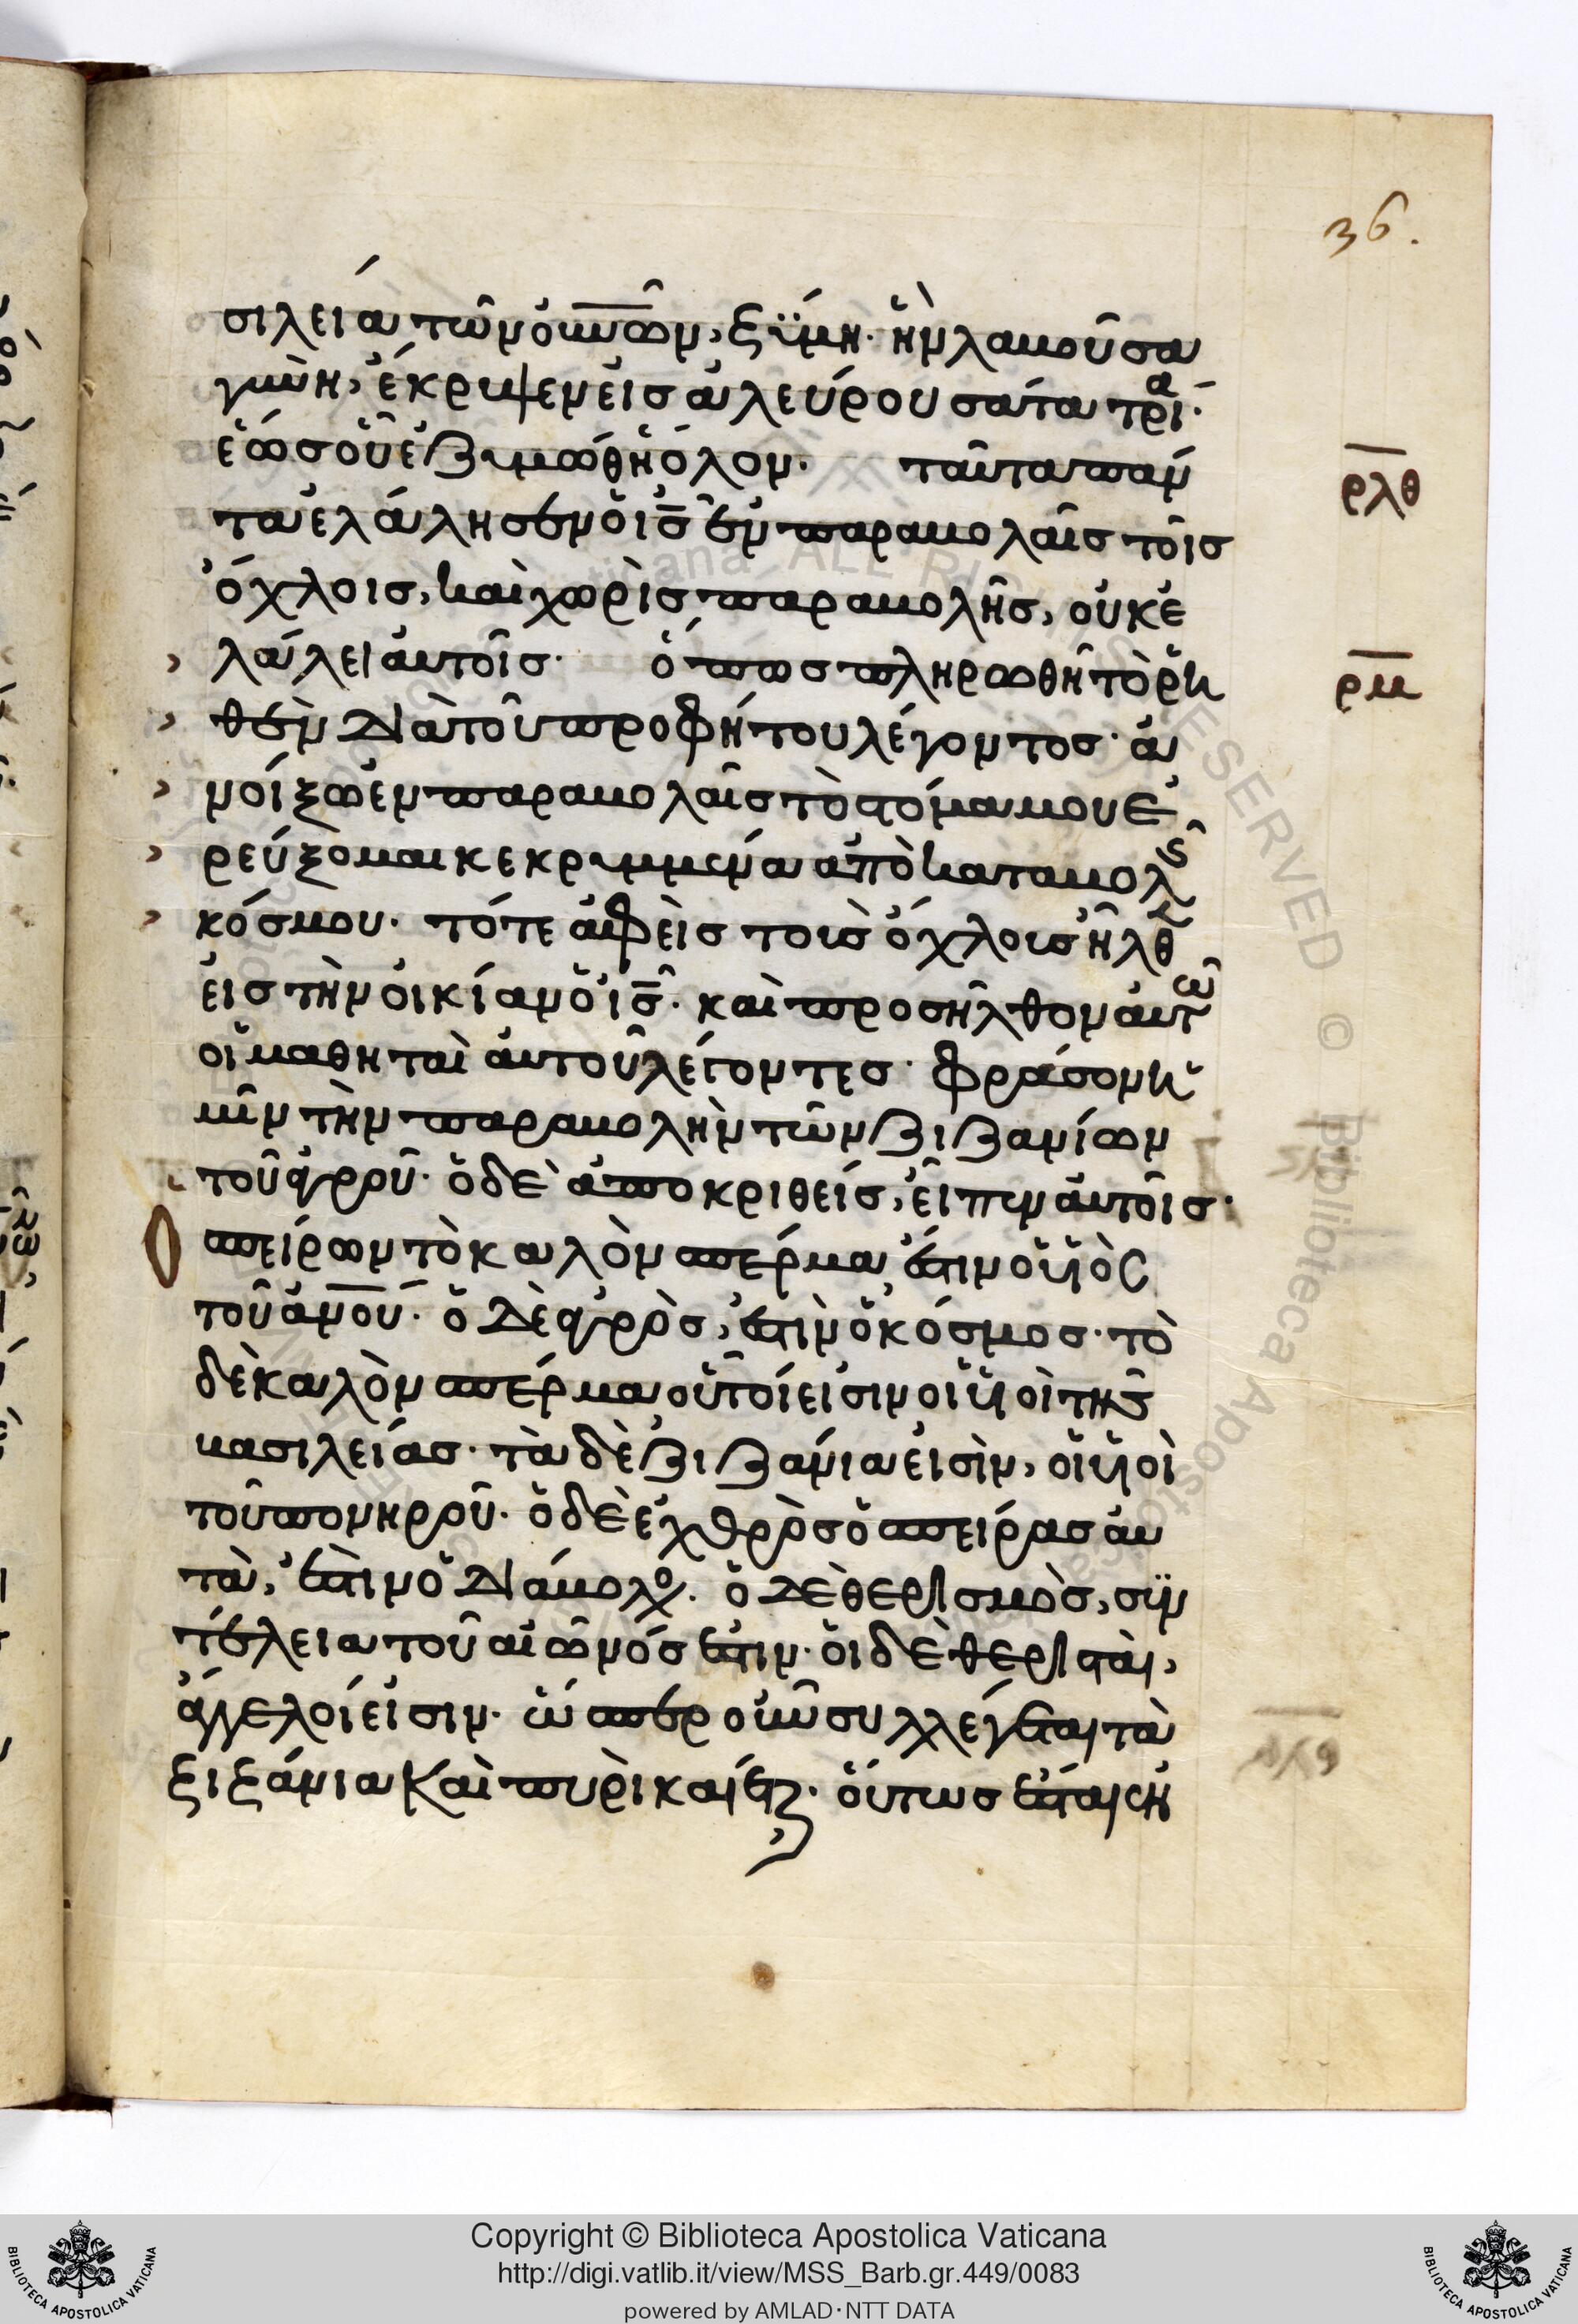 36.
σιλεία τῶν οὐν̅ω̅ν, ζύμη· ἣν λαβοῦσα
γυνὴ, ἐκρυψεν εἰς ἀλεύρου σάτα τρία·
ἕως οὗ ἐζυμώθη ὅλον. ταῦτα πάν
ρ̅λ̅θ̅
τα ἐλάλησεν ὁ ι̅ς̅ ἐν παραβολαῖς τοῖς
ὄχλοις, καὶ χωρὶς παραβολῆς, οὐκ ἐ
› λάλει αὐτοῖς· ὅπως πληρωθῇ τὸ ῥη
ρ̅μ̅
› θὲν διὰ τοῦ προφήτου λέγοντος· ἀ
› νοίξω ἐν παραβολαῖς τὸ στόμα μου ἐ
› ρεύξομαι κεκρυμμένα ἀπὸ καταβολῆς
› κόσμου· τότε ἀφεὶς τοὺς ὄχλους ἦλθεν
εἰς τὴν οἰκίαν ὁ ι̅ς̅· καὶ προσῆλθον αὐτῶ
οἱ μαθηταὶ αὐτοῦ λέγοντες· φράσον ἡ
μῖν τὴν παραβολὴν τῶν ζιζανίων
τοῦ ἀγροῦ· ὁ δὲ ἀποκριθείς, εἶπεν αὐτοῖς·
σπείρων τὸ καλὸν σπέρμα, ἐστιν ὁ υἱὸς
τοῦ α̅ν̅ο̅υ̅· ὁ δὲ ἀγρὸς, ἐστὶν ὁ κόσμος· τὸ
δὲ καλὸν σπέρμα οὗτοί εἰσιν οἱ υἱοὶ τῆς
βασιλείας· τὰ δὲ ζιζάνια εἰσὶν, οἱ υἱοὶ
τοῦ πονηροῦ· ὁ δὲ ἐχθρὸς ὁ σπείρας αὐ
τὰ, ἐστὶν ὁ διάβολος. ὁ δὲ θερισμὸς, συν
τέλεια τοῦ αἰῶνός ἐστιν· οἱ δὲ θερισταὶ,
ἄγγελοί εἰσιν· ὥσπερ οὖν συλλέγεται τὰ
ζιζάνια καὶ πυρὶ καίεται· οὕτως ἔσται ἐν
Copyright © Biblioteca Apostolica Vaticana
http://digi.vatlib.it/view/MSS_Barb.gr.449/0083
powered by AMLAD·NTT DATA